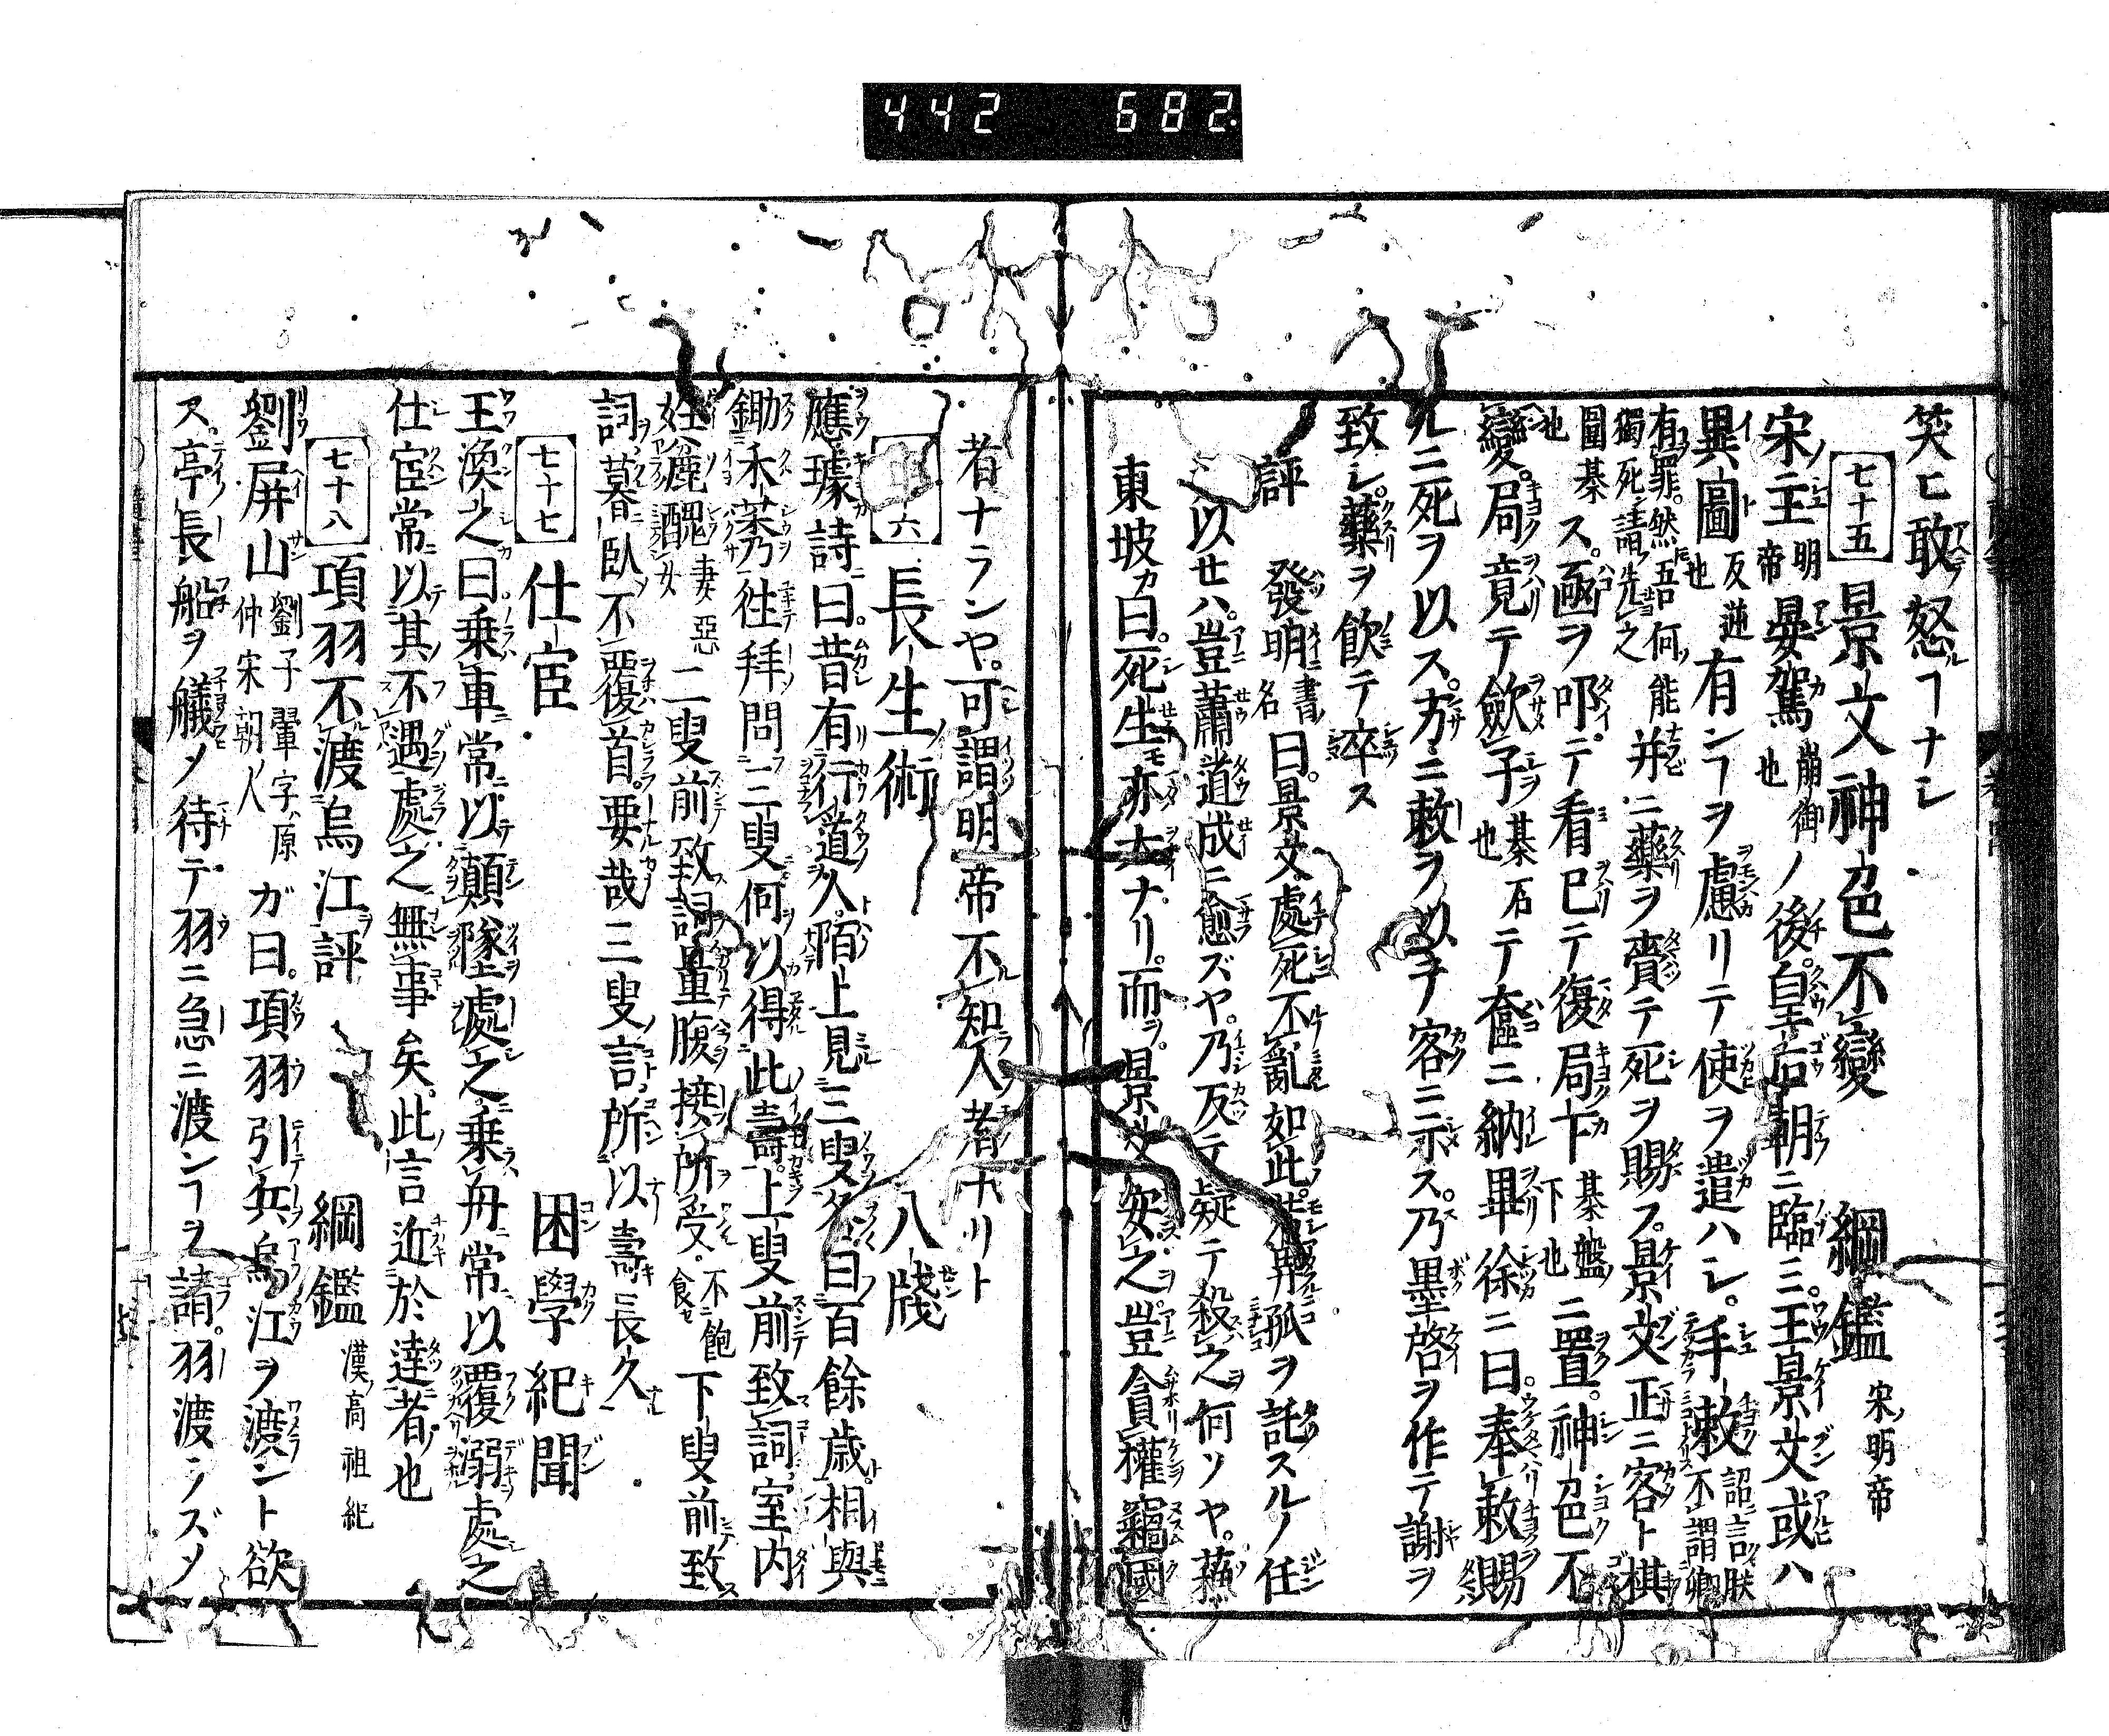 442 682
笑ヒ敢怒ルヿナシ
七十五 景文神色不變 綱鑑 宋ノ明帝
宋ノ主明帝晏駕崩御也ノ後。皇后朝ニ臨ミ。王景文或ハ
異圖反逆也有ンヿヲ慮リテ使ヲ遣ハシ。手敕詔ニ言ク朕不謂卿
有罪。然吾何ノ能獨死ニ請フ先之并ニ藥ヲ齎テ死ヲ賜フ。景文正ニ客ト棋
圍碁ス。函ヲ叩テ看已テ復局下碁盤ノ下也ニ置。神色不
變。局竟テ斂子碁石也テ奩ニ納畢徐ニ曰。奉敕賜
ルニ死ヲ以ス。方ニ敕ヲ以テ客ニ示ス。乃墨啓ヲ作テ謝ヲ
致シ。藥ヲ飲テ卒ス
評 發明書ノ名曰。景文處死不亂如此。孤ヲ託スルノ任
以セハ。豈蕭道成ニ愈ズヤ。乃反テ疑テ殺之何ソヤ。蘓
東坡カ曰。死生モ亦大ナリ。而ヲ。景文安之豈貪權竊國
者ナランヤ。可謂明帝不知人者ナリト
六 長生術 八牋
應璩詩曰。昔有行道人。陌上見三叟各曰百餘歳。相與
鋤禾莠乃往拜問三叟何以得此壽。上叟前致詞室内
姙麁醜妻惡二叟前致詞量腹接所受。不飽食セ下叟前致
詞。暮臥不覆首。要哉三叟言所以壽長久
七十七 仕宦 困學紀聞
王渙之曰乗車常以顚墜處之。乗舟常以覆溺處之
仕宦常以其不遇處之無事矣。此言近於達者也
七十八 項羽不渡烏江評 綱鑑 漢ノ高祖紀
劉屏山劉子翬字ハ原仲宋朝ノ人ガ曰。項羽引兵烏江ヲ渡ント欲
ス。亭長船ヲ艤ノ待テ羽ニ急ニ渡ンヿヲ請。羽渡ラズメ